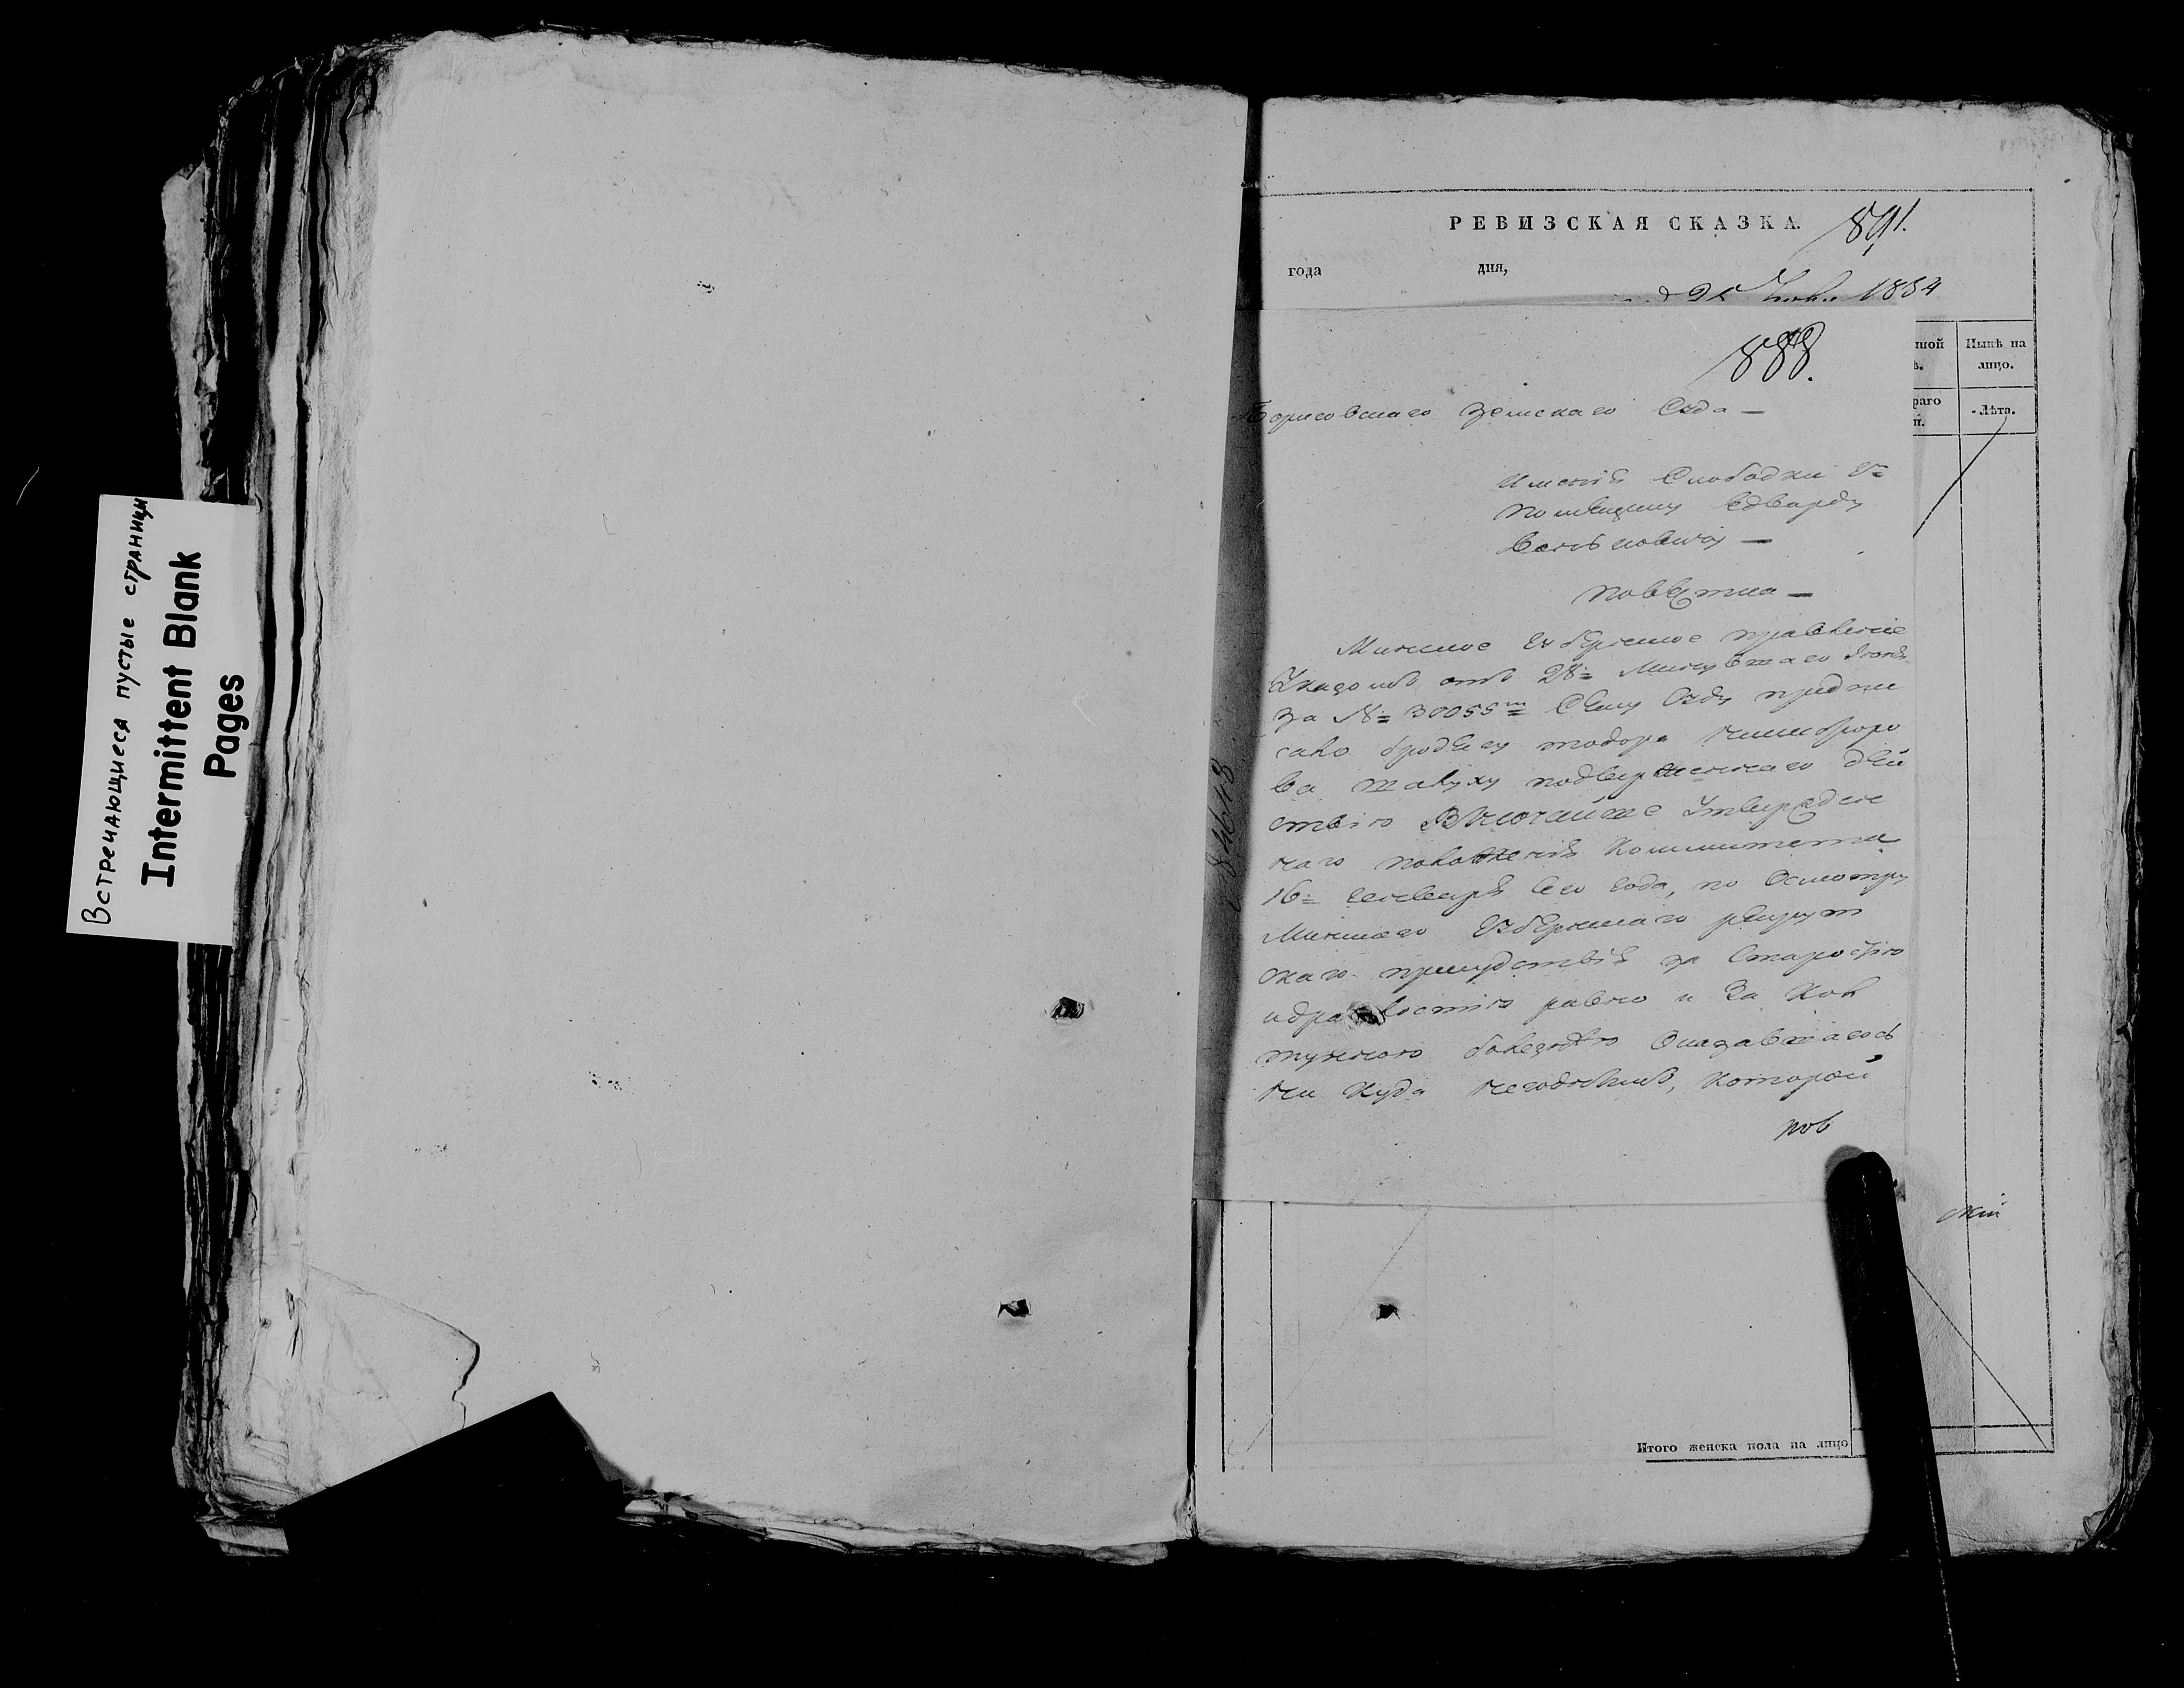 Встречающиеся пустые страницы
Intermittent Blank
Pages
РЕВИЗСКАЯ СКАЗКА.
891.
года дня,
25 1834
888.
Нынѣ на
лицо.
раго
Лѣта.
Борисовскаго Земскаго Суда —
Имѣнія Слободки Г=
помѣщику Едварду
повѣстка —
Минское Губернское правленіе
Указомъ отъ 28= Минувшаго
за №= 30055 Сему Суду предпи
сало бродягу
подверженнаго дѣй
ствію Высочайше Утвержден
наго положенія Коммитета
16= Генваря сего года, по Осмотру
Минскаго Губернскаго рекрут
скаго присудствія за Старостію
и дряхлостію равно и За Кол
тунною болезнію Оказавшагось
ни куда негоднымъ, Которой
пов
Итого женска пола на лицо